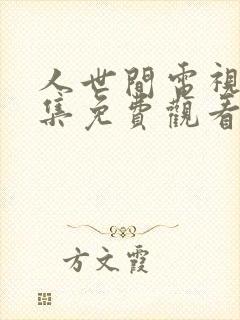 人世間電視
集免費觀看
方文霞